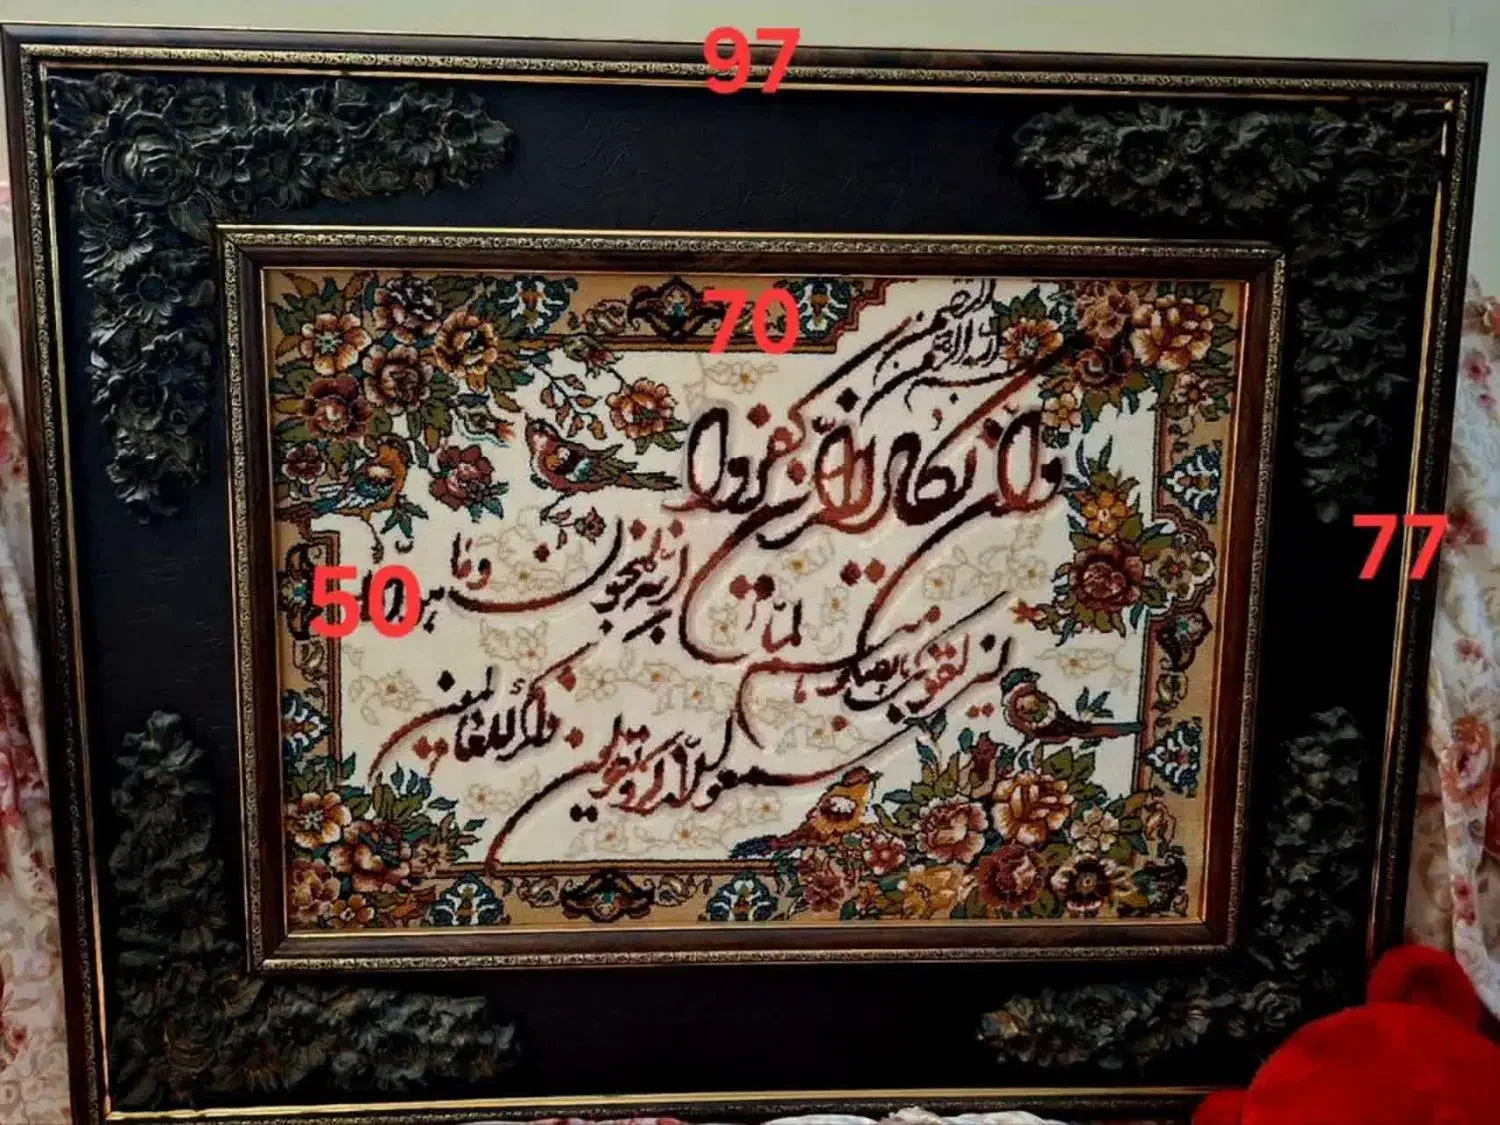 97
70
بسم الله الرحمن الرحیم
وان یکاد الذین کفروا
لیزلقونک بابصارهم لما
سمعوا الذکر و یقولون
انه لمجنون وما هو الا
ذکر للعالمین
50
77